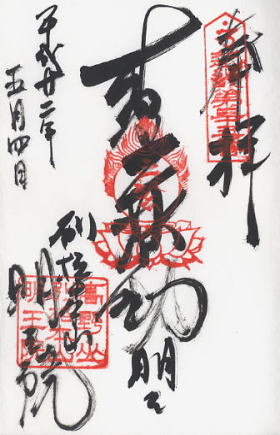 奉拝
赤不動明王
別格本山
明王院
平成廿二年
五月四日